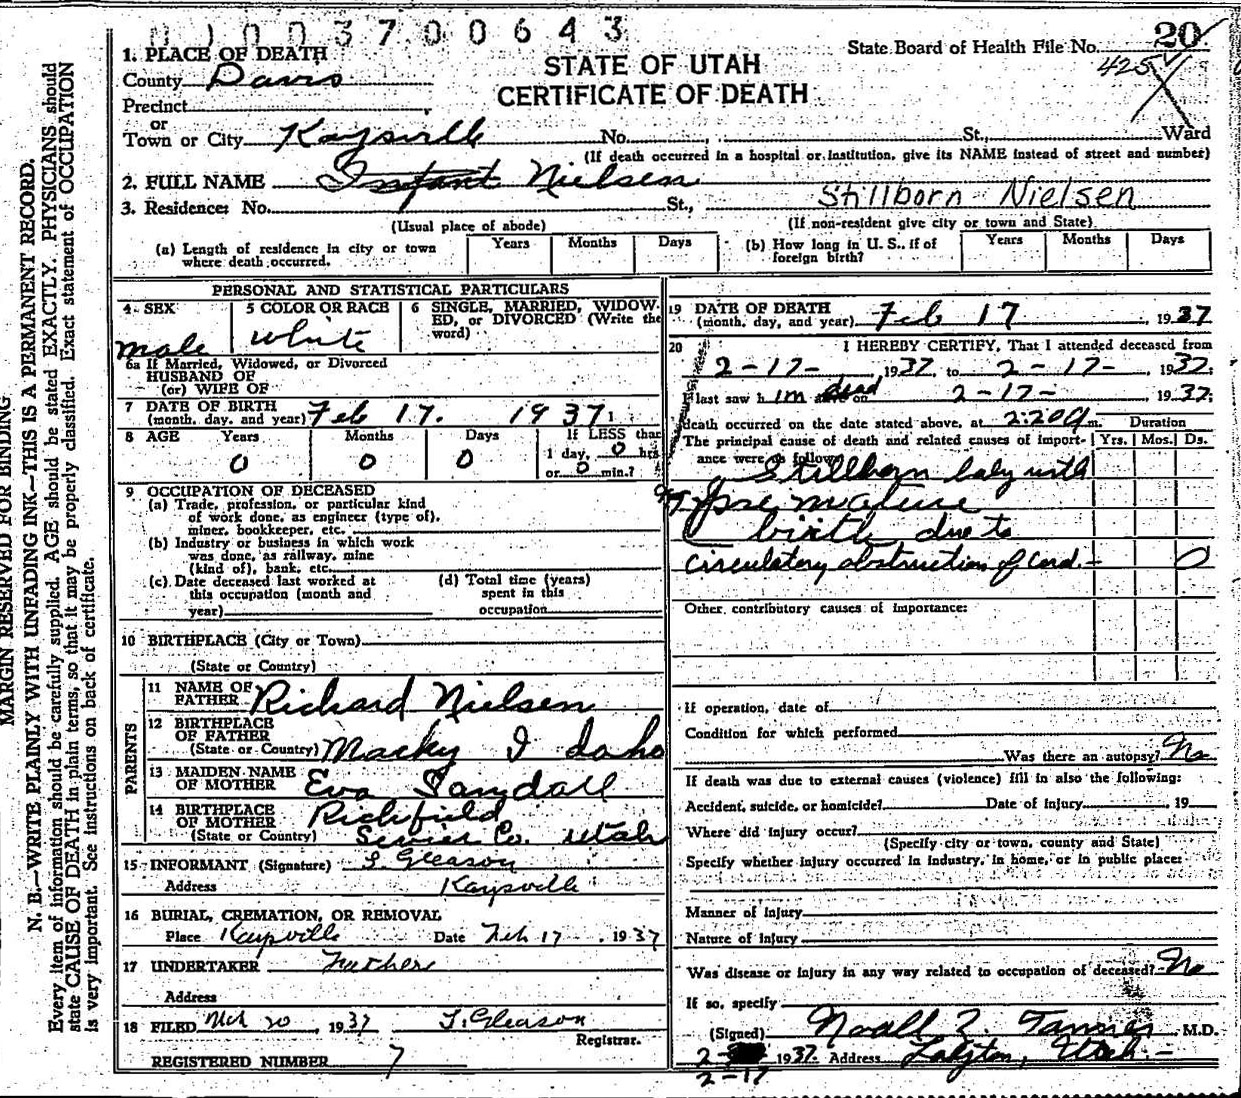 0 1 0 0 3 7 0 0 6 4 3
State Board of Health File No. 20
425
STATE OF UTAH
CERTIFICATE OF DEATH
1. PLACE OF DEATH
County Davis
Precinct
or
Town or City Kaysville No. St., Ward
(If death occurred in a hospital or institution, give its NAME instead of street and number)
2. FULL NAME Infant Nielsen
Stillborn Nielsen
3. Residence: No. St.,
(Usual place of abode) (If non-resident give city or town and State)
(a) Length of residence in city or town where death occurred. Years Months Days (b) How long in U. S., if of foreign birth? Years Months Days
PERSONAL AND STATISTICAL PARTICULARS
4 SEX male
5 COLOR OR RACE white
6 SINGLE, MARRIED, WIDOWED, or DIVORCED (Write the word)
6a If Married, Widowed, or Divorced
HUSBAND OF
(or) WIFE OF
7 DATE OF BIRTH
(month, day, and year) Feb 17. 1937
8 AGE Years Months Days If LESS than
0 0 0 1 day, 0 hrs
or 0 min.?
9 OCCUPATION OF DECEASED
(a) Trade, profession, or particular kind
of work done, as engineer (type of),
miner, bookkeeper, etc.
(b) Industry or business in which work
was done, as railway, mine
(kind of), bank, etc.
(c) Date deceased last worked at
this occupation (month and
year)
(d) Total time (years)
spent in this
occupation
10 BIRTHPLACE (City or Town)
(State or Country)
PARENTS
11 NAME OF
FATHER Richard Nielsen
12 BIRTHPLACE
OF FATHER
(State or Country) Macky Idaho
13 MAIDEN NAME
OF MOTHER Eva Sandall
14 BIRTHPLACE
OF MOTHER Richfield
(State or Country) Sevier Co. Utah
15 INFORMANT (Signature) T. Gleason
Address Kaysville
16 BURIAL, CREMATION, OR REMOVAL
Place Kaysville Date Feb 17, 1937
17 UNDERTAKER Father
Address
18 FILED Mch 20, 1937 T. Gleason
Registrar.
REGISTERED NUMBER 7
19 DATE OF DEATH
(month, day, and year) Feb 17, 1937
20 I HEREBY CERTIFY, That I attended deceased from
2-17-, 1937, to 2-17-, 1937;
I last saw him dead on 2-17-, 1937;
death occurred on the date stated above, at 2:20 a m. Duration
The principal cause of death and related causes of importance were as follows: Yrs. Mos. Ds.
Stillborn baby with
premature
birth due to
circulatory obstruction of cord.- 0
Other contributory causes of importance:
If operation, date of
Condition for which performed
Was there an autopsy? No
If death was due to external causes (violence) fill in also the following:
Accident, suicide, or homicide? Date of injury , 19
Where did injury occur?
(Specify city or town, county and State)
Specify whether injury occurred in industry, in home, or in public place:
Manner of Injury
Nature of Injury
Was disease or injury in any way related to occupation of deceased? No
If so, specify
(Signed) Noall Z. Tanner M.D.
2- 1937 Address Layton, Utah.-
2-17
MARGIN RESERVED FOR BINDING
N. B.—WRITE PLAINLY WITH UNFADING INK—THIS IS A PERMANENT RECORD.
Every item of information should be carefully supplied. AGE should be stated EXACTLY. PHYSICIANS should
state CAUSE OF DEATH in plain terms, so that it may be properly classified. Exact statement of OCCUPATION
is very important. See instructions on back of certificate.